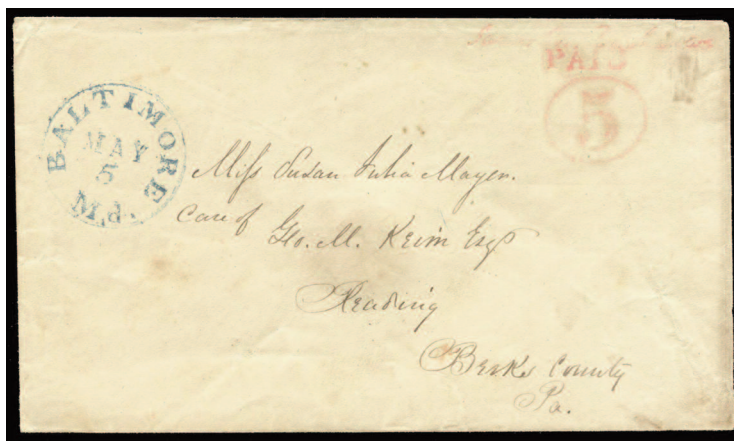 PAID
5
BALTIMORE
MAY
5
P.M.
Miss Susan Julia Mayer.
Care of
Geo. M. Keim Esq
Reading
Berks County
Pa.